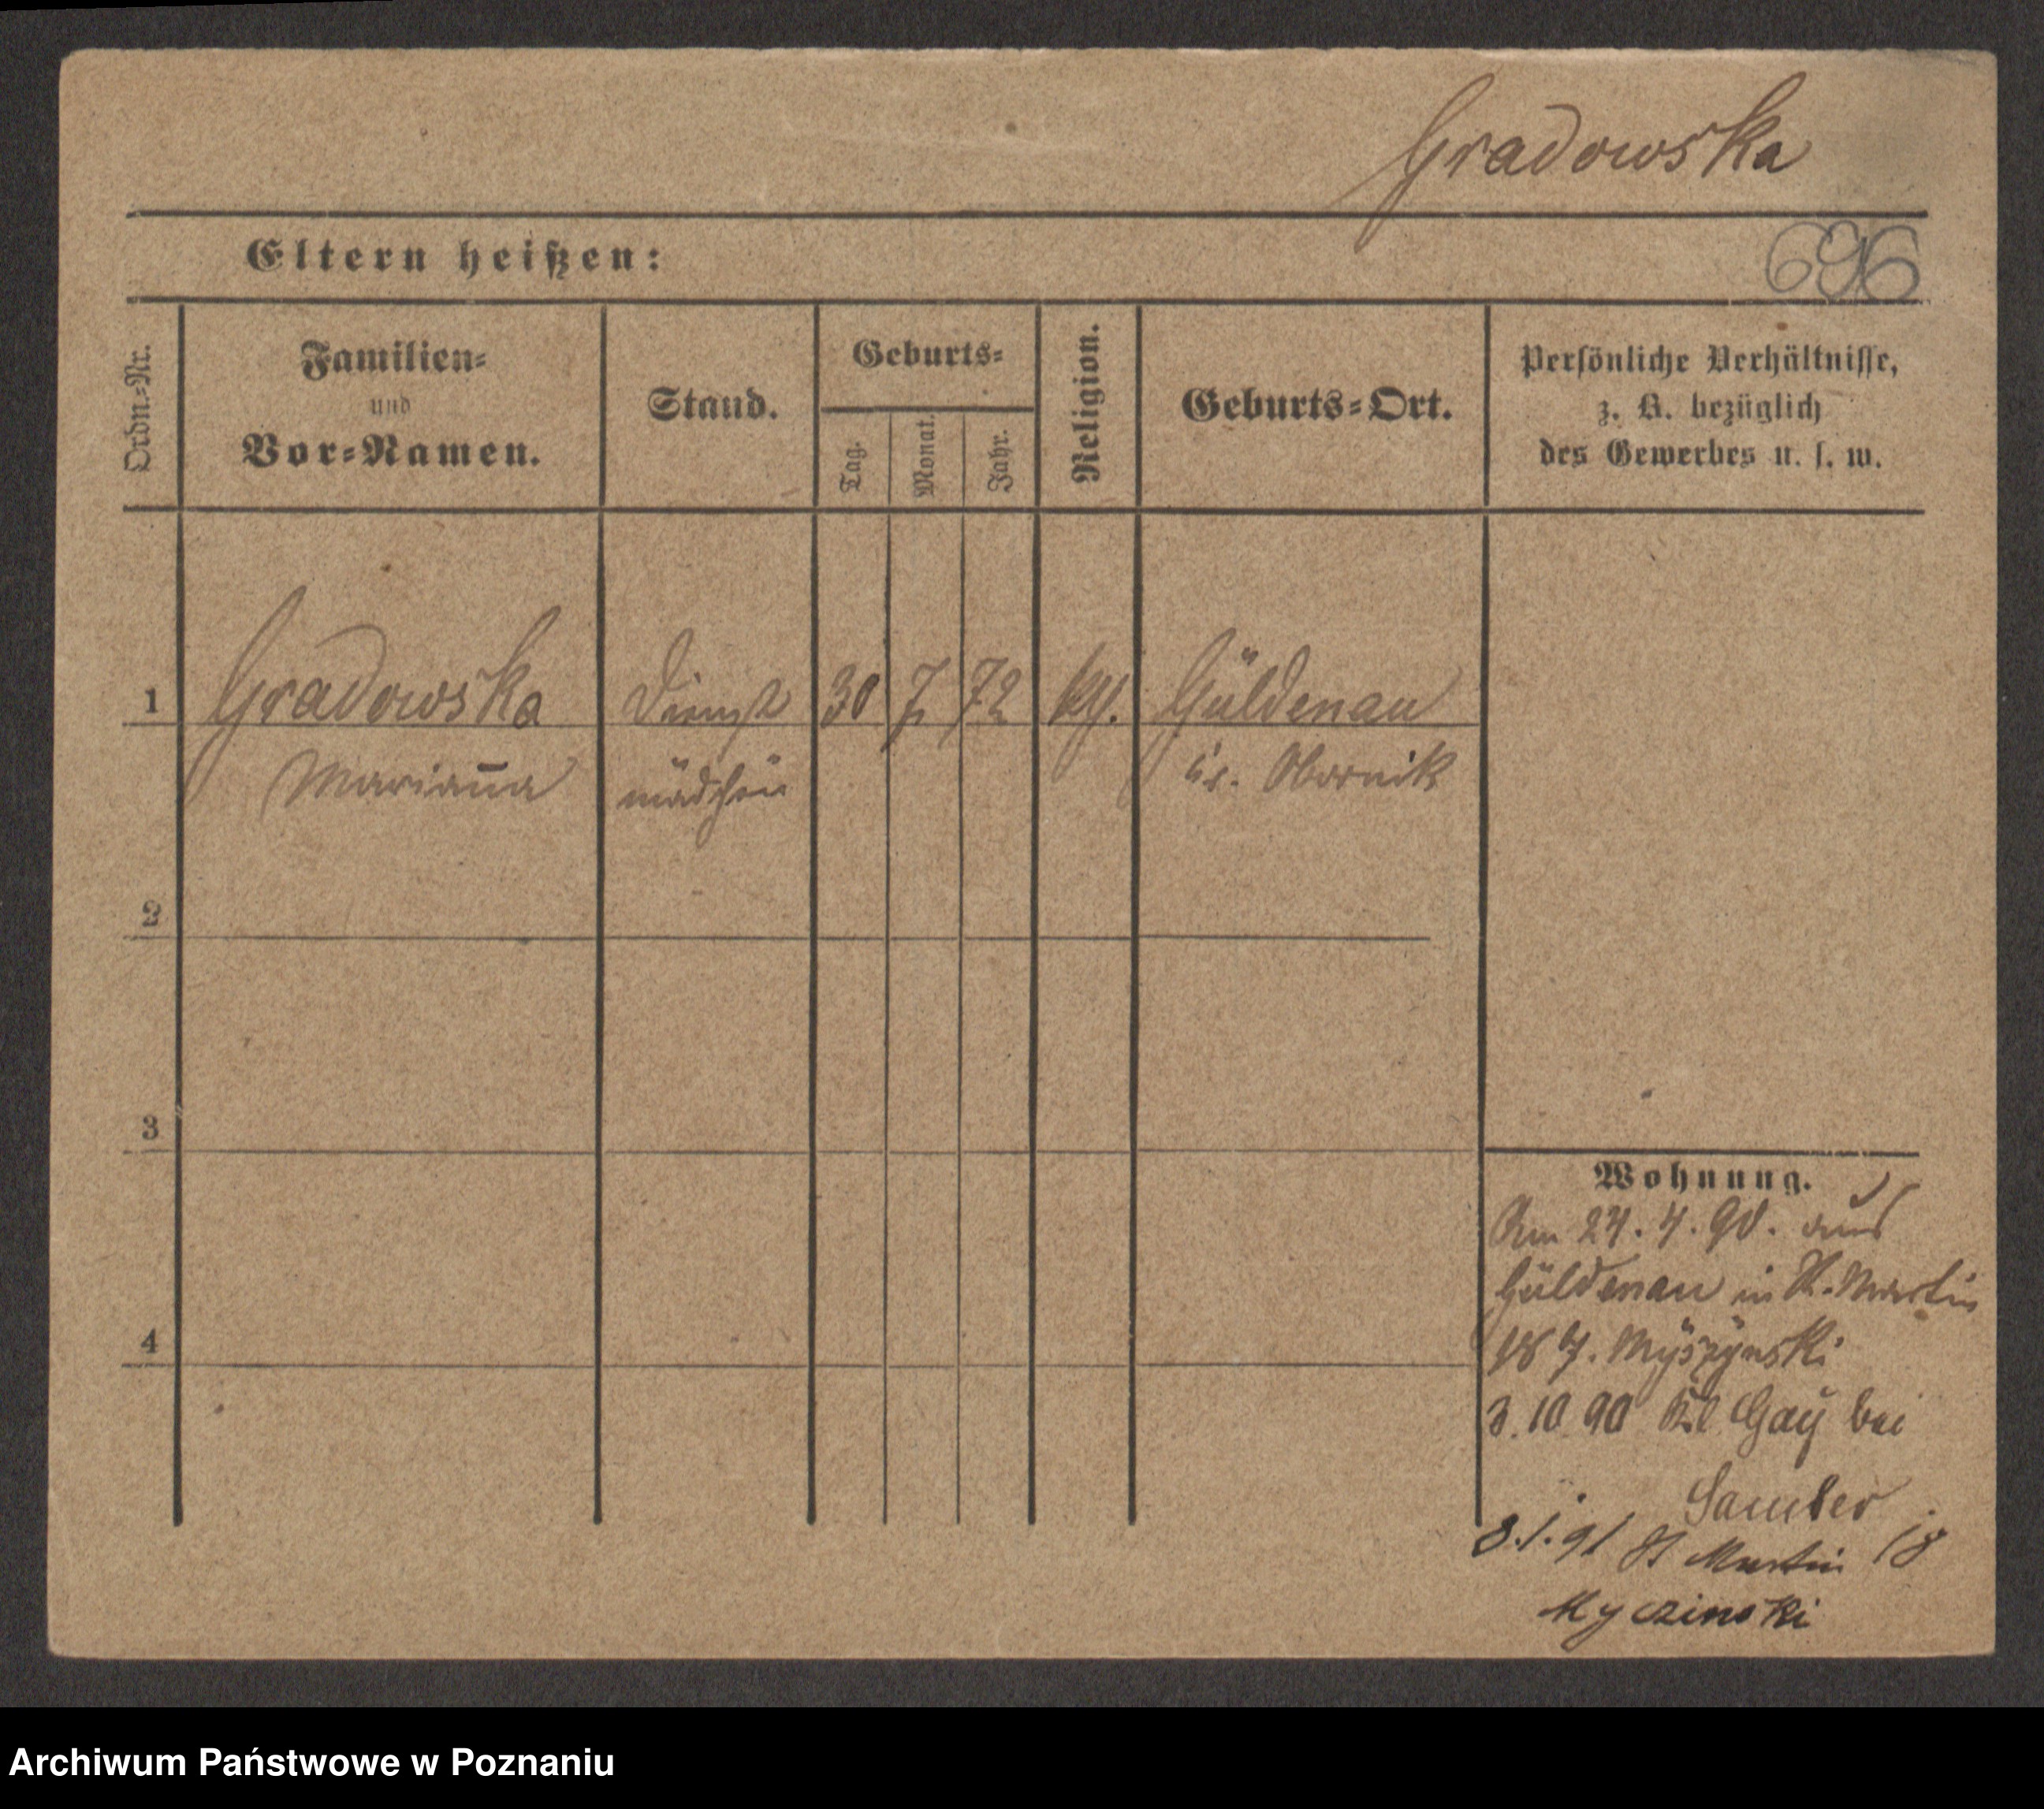 Gradowska
Eltern heißen:
696
Ordn.-Nr.
Familien-
und
Vor-Namen.
Stand.
Geburts-
Tag.
Monat.
Jahr.
Religion.
Geburts-Ort.
Persönliche Verhältnisse,
z. B. bezüglich
des Gewerbes u. s. w.
1 Gradowska Dienst 30 7 72 kth. Güldenau
Mariana̅ mädchen Kr. Obornik
2
3
4
Wohnung.
Am 24. 4. 90. aus
Güldenau in St. Martin
18 Myszynski
3. 10 90 Kl Gay bei
Samter
8. 1. 91 St Martin 18
Myczinski
Archiwum Państwowe w Poznaniu